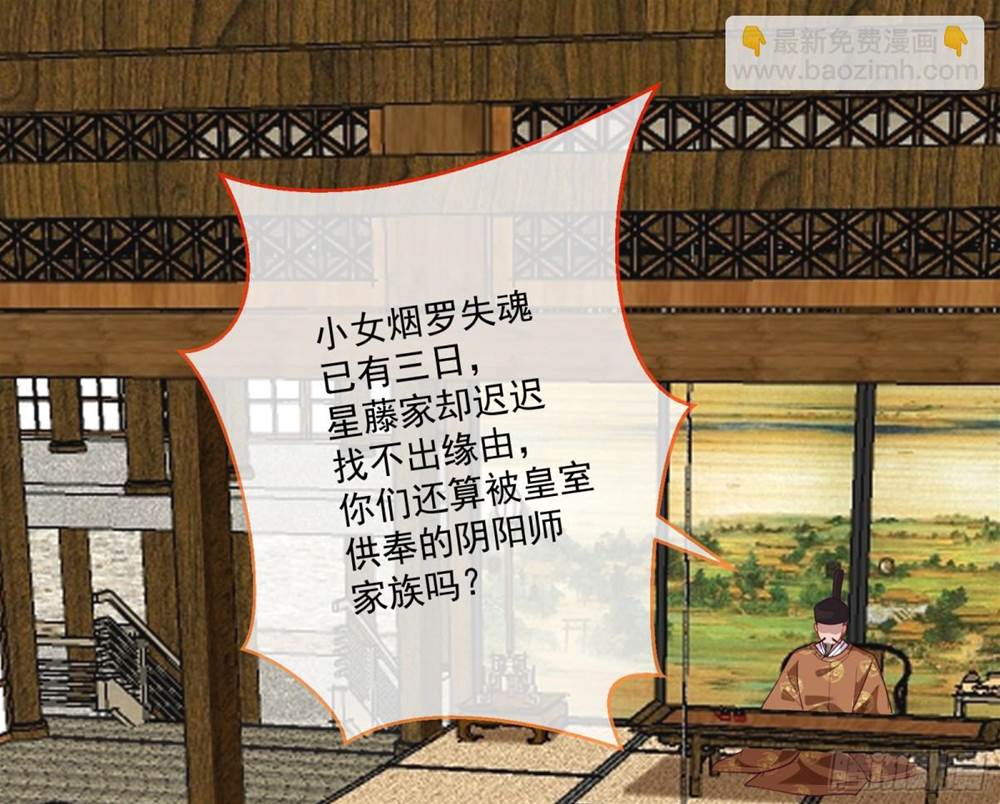 👇最新免费漫画👇
www.baozimh.com
小女烟罗失魂
已有三日，
星藤家却迟迟
找不出缘由，
你们还算被皇室
供奉的阴阳师
家族吗？